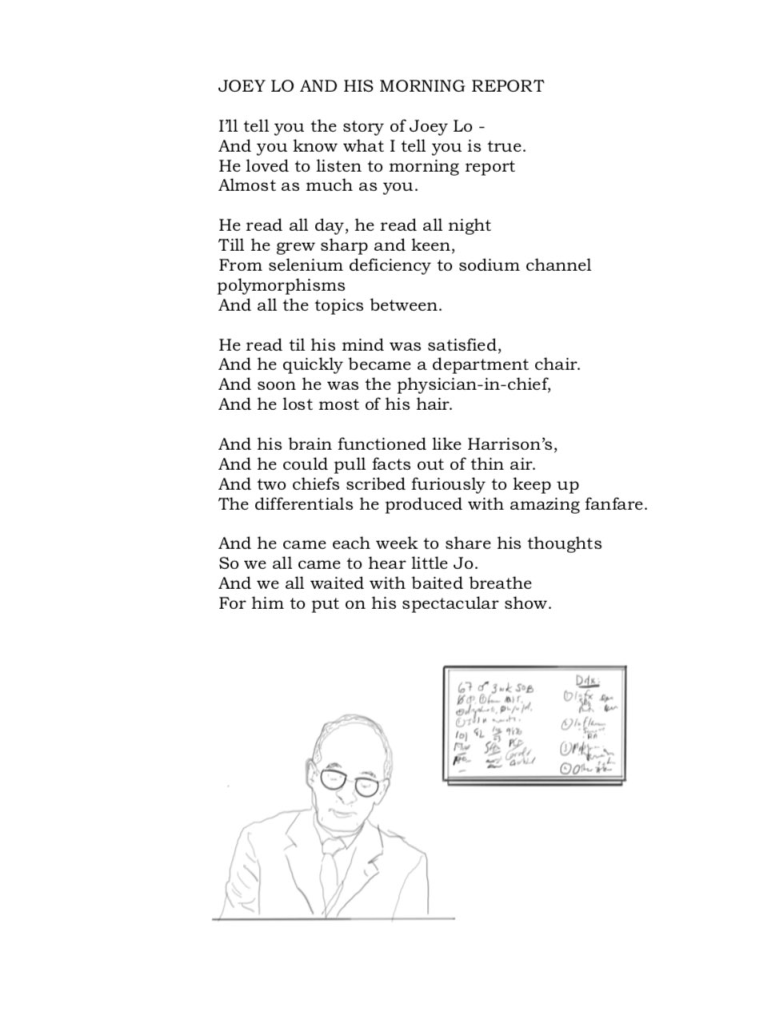 JOEY LO AND HIS MORNING REPORT
I'll tell you the story of Joey Lo -
And you know what I tell you is true.
He loved to listen to morning report
Almost as much as you.
He read all day, he read all night
Till he grew sharp and keen,
From selenium deficiency to sodium channel
polymorphisms
And all the topics between.
He read til his mind was satisfied,
And he quickly became a department chair.
And soon he was the physician-in-chief,
And he lost most of his hair.
And his brain functioned like Harrison's,
And he could pull facts out of thin air.
And two chiefs scribed furiously to keep up
The differentials he produced with amazing fanfare.
And he came each week to share his thoughts
So we all came to hear little Jo.
And we all waited with baited breathe
For him to put on his spectacular show.
67 ♂ 3 wk SOB
Ddx: